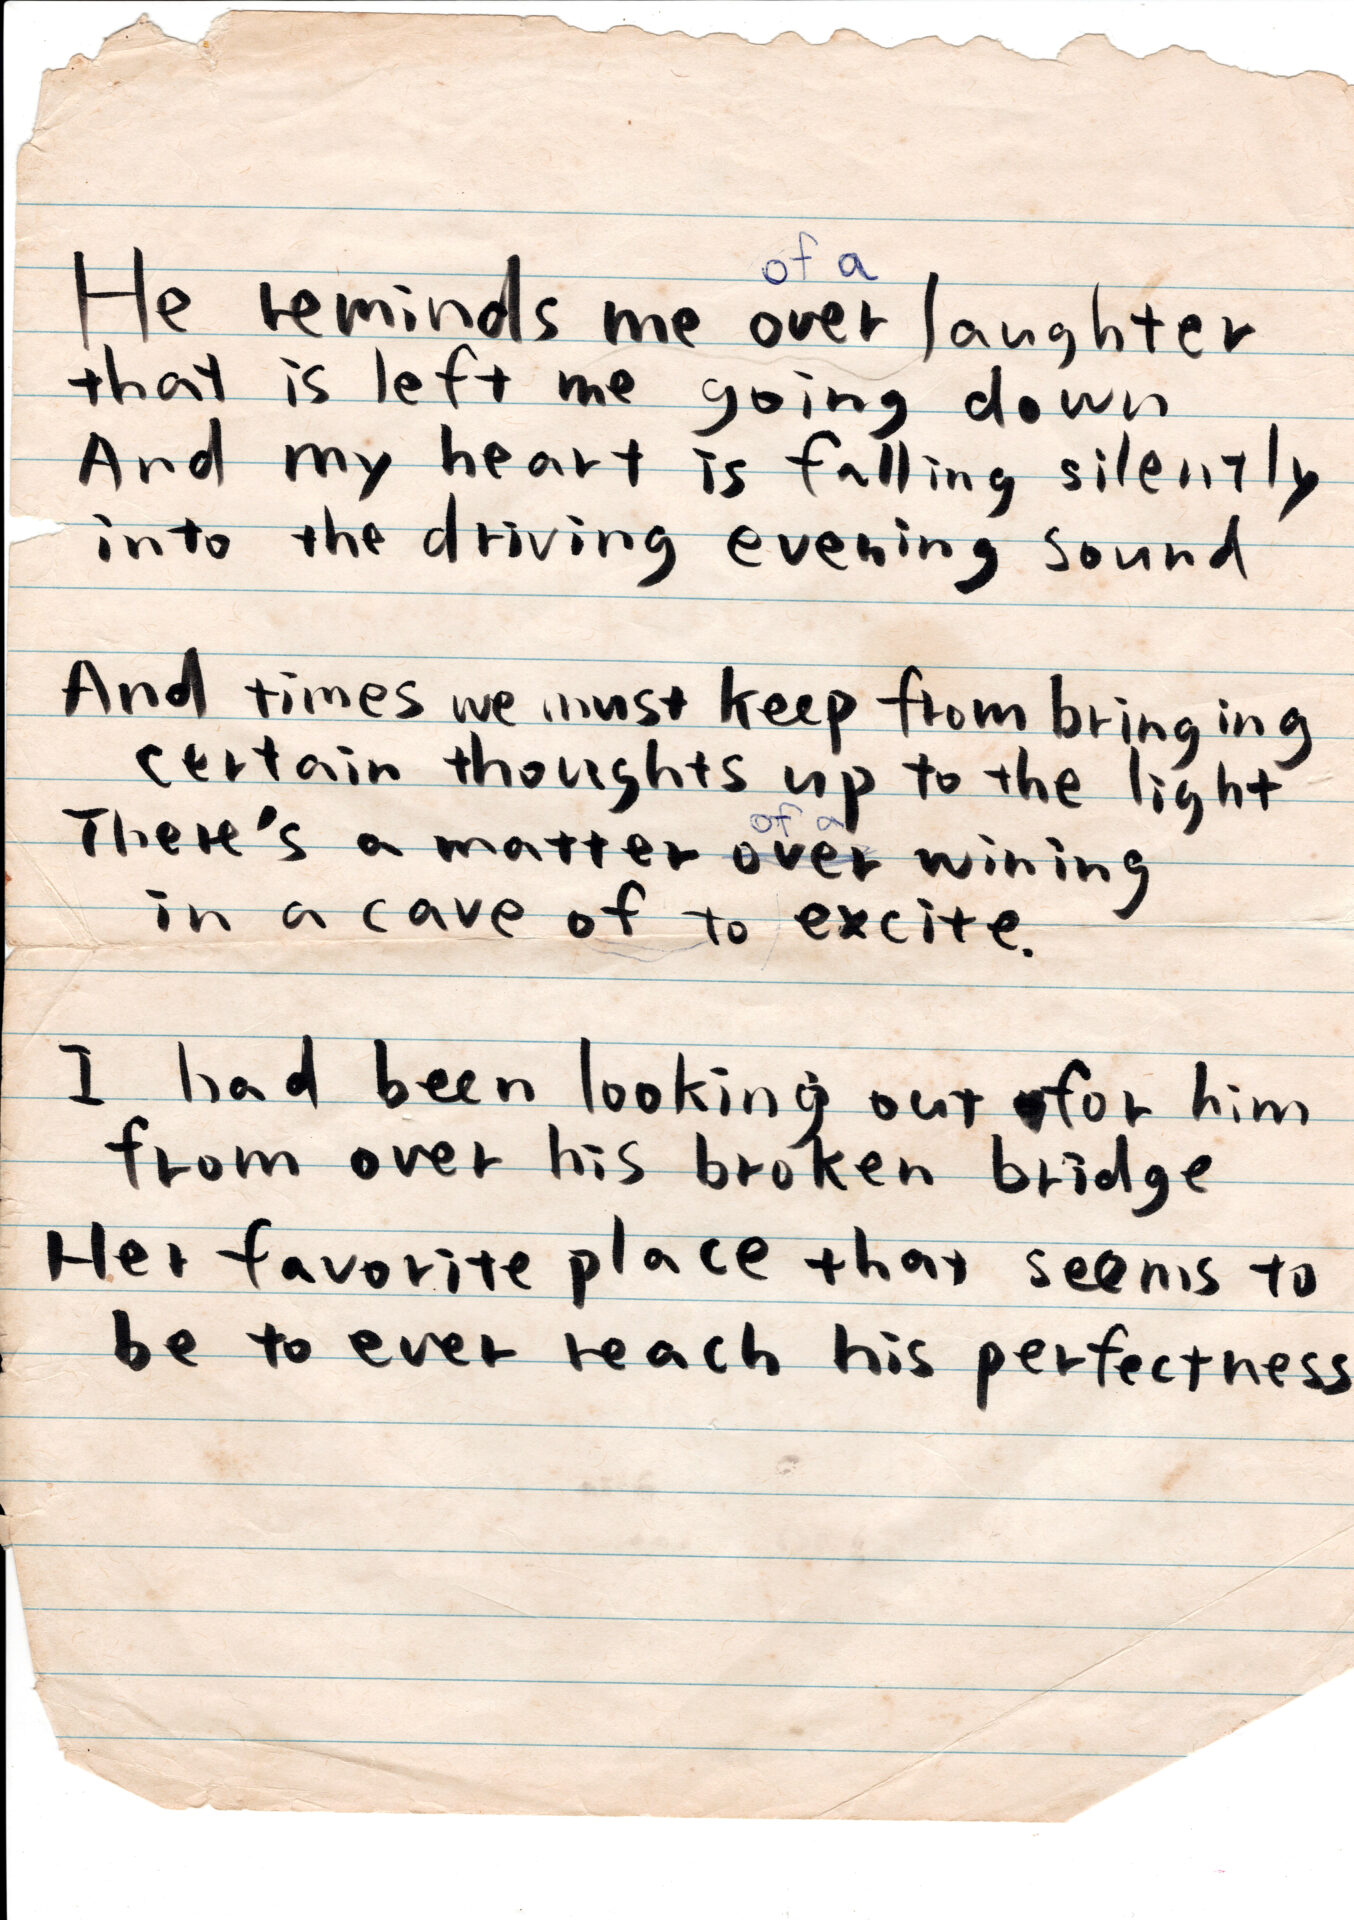 of a
He reminds me over laughter
that is left me going down
And my heart is falling silently
into the driving evening sound
And times we must keep from bringing
certain thoughts up to the light
of a
There's a matter over wining
in a cave of to excite.
I had been looking out for him
from over his broken bridge
Her favorite place that seems to
be to ever reach his perfectness